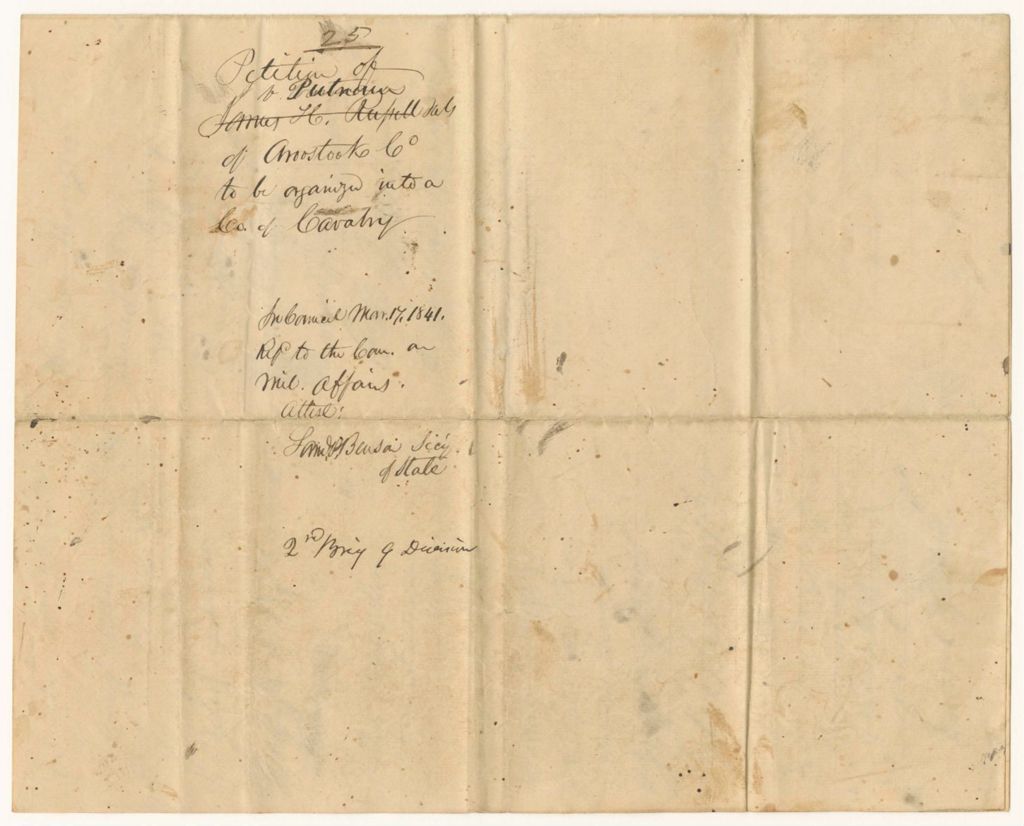 25
Petition of
Putnam
James H. Russell
of Aroostook Co
to be organized into a
Co. of Cavalry
In Council Mar. 17, 1841.
Refd to the Com. on
Mil. Affairs.
Attest:
Saml P Benson Secy.
of State
2nd Brig 9 Division